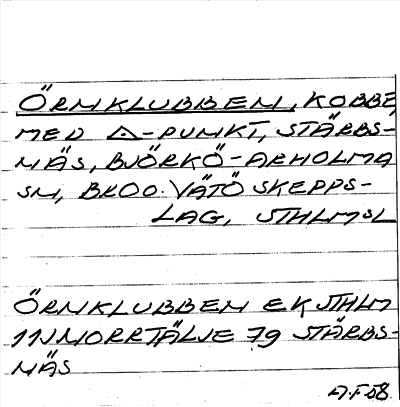 ÖRNKLUBBEN, KOBBE,
MED △-PUNKT, STÄRBS-
NÄS, BJÖRKÖ-ARHOLMA
SN, BRO O. VÄTÖ SKEPPS-
LAG, STHLMSL
ÖRNKLUBBEN EK STHLM
11J NORRTÄLJE 79 STÄRBS-
NÄS
A.F. 58